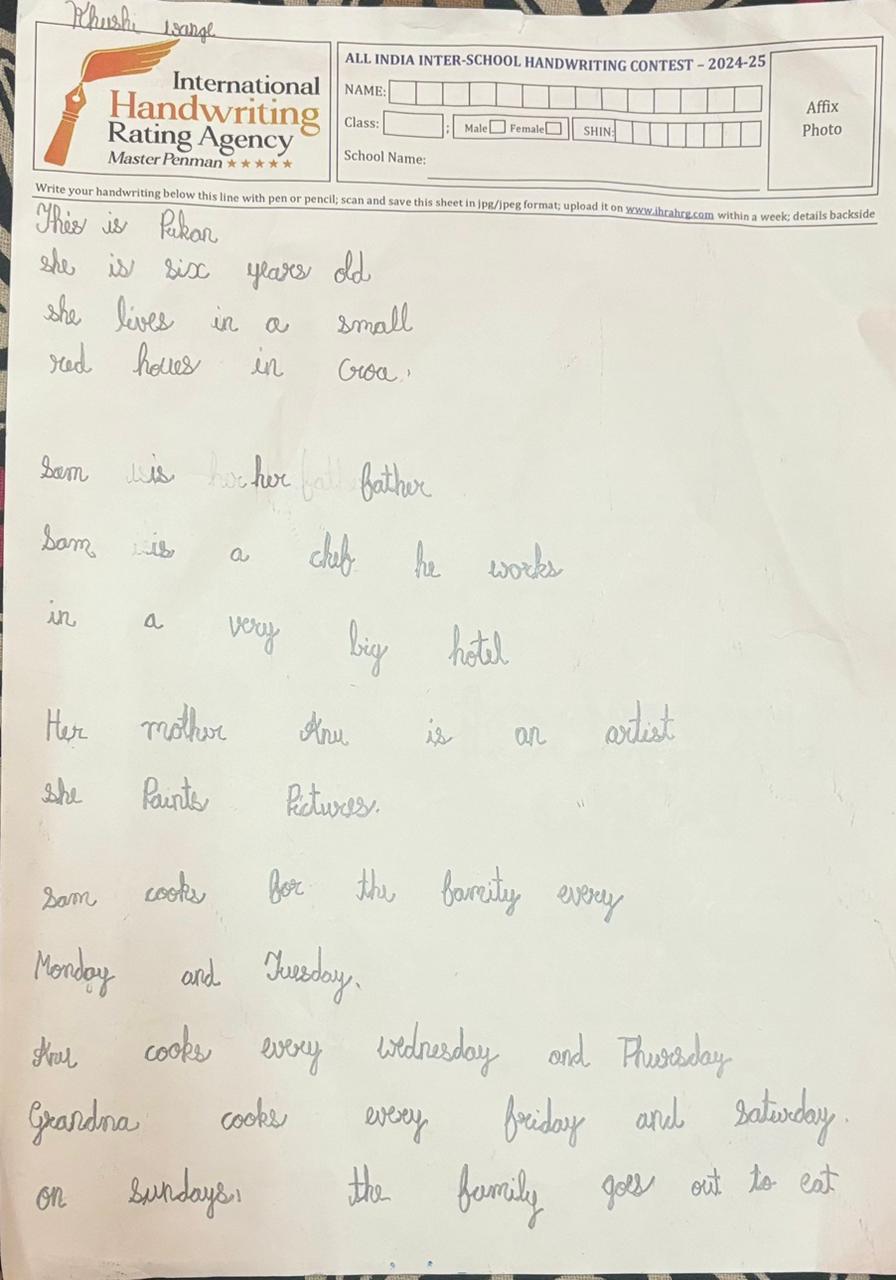 Khushi wange
International
Handwriting
Rating Agency
Master Penman ★★★★★
ALL INDIA INTER-SCHOOL HANDWRITING CONTEST – 2024-25
NAME:
Class: ; Male Female SHIN:
School Name:
Affix
Photo
Write your handwriting below this line with pen or pencil; scan and save this sheet in jpg/jpeg format; upload it on www.ihrahrg.com within a week; details backside
This is Pukan
she is six years old
she lives in a small
red houes in Goa.
Sam is her father
Sam is a chef he works
in a very big hotel
Her mother Anu is an artist
she Paints Pictures.
Sam cooks for the famity every
Monday and Tuesday.
Anu cooks every wednesday and Thursday
Grandna cooks every friday and Saturday.
on Sundays, the family goes out to eat